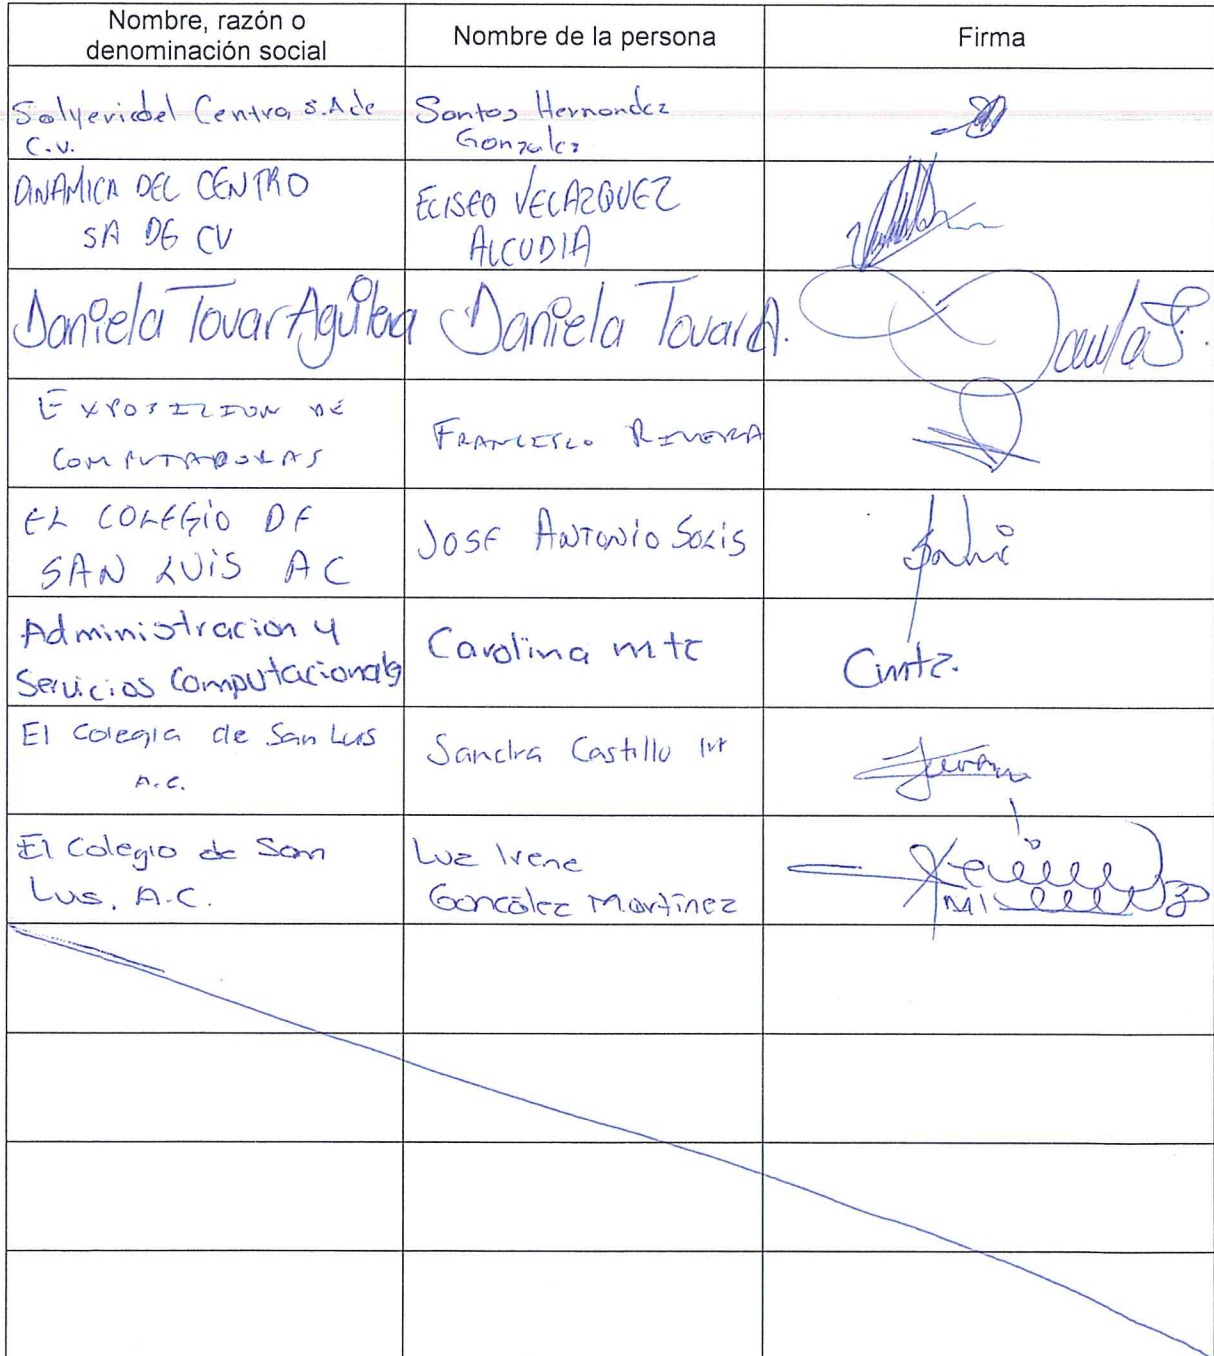 Nombre, razón o
denominación social
Nombre de la persona
Firma
del Centro, S.A de
C.V.
Santos Hernandez
Gonzalez
DINAMICA DEL CENTRO
SA DE CV
ELISEO VELAZQUEZ
ALCUDIA
Daniela Tovar Aguilera
Daniela Tovar A.
EXPOSICION DE
COMPUTADORAS
FRANCISCO RIVERA
EL COLEGIO DE
SAN LUIS AC
JOSE ANTONIO SOLIS
Administracion y
Servicios Computacionales
Carolina mtz
Cmtz.
El Colegio de San Luis
A.C.
Sandra Castillo
El Colegio de San
Luis, A.C.
Luz Irene
González Martínez